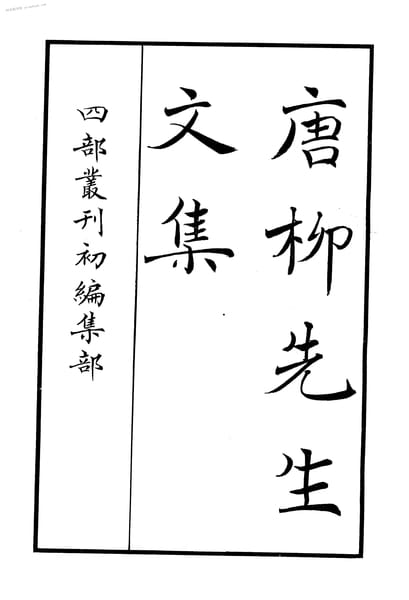 唐柳先生
文集
四部叢刊初編集部